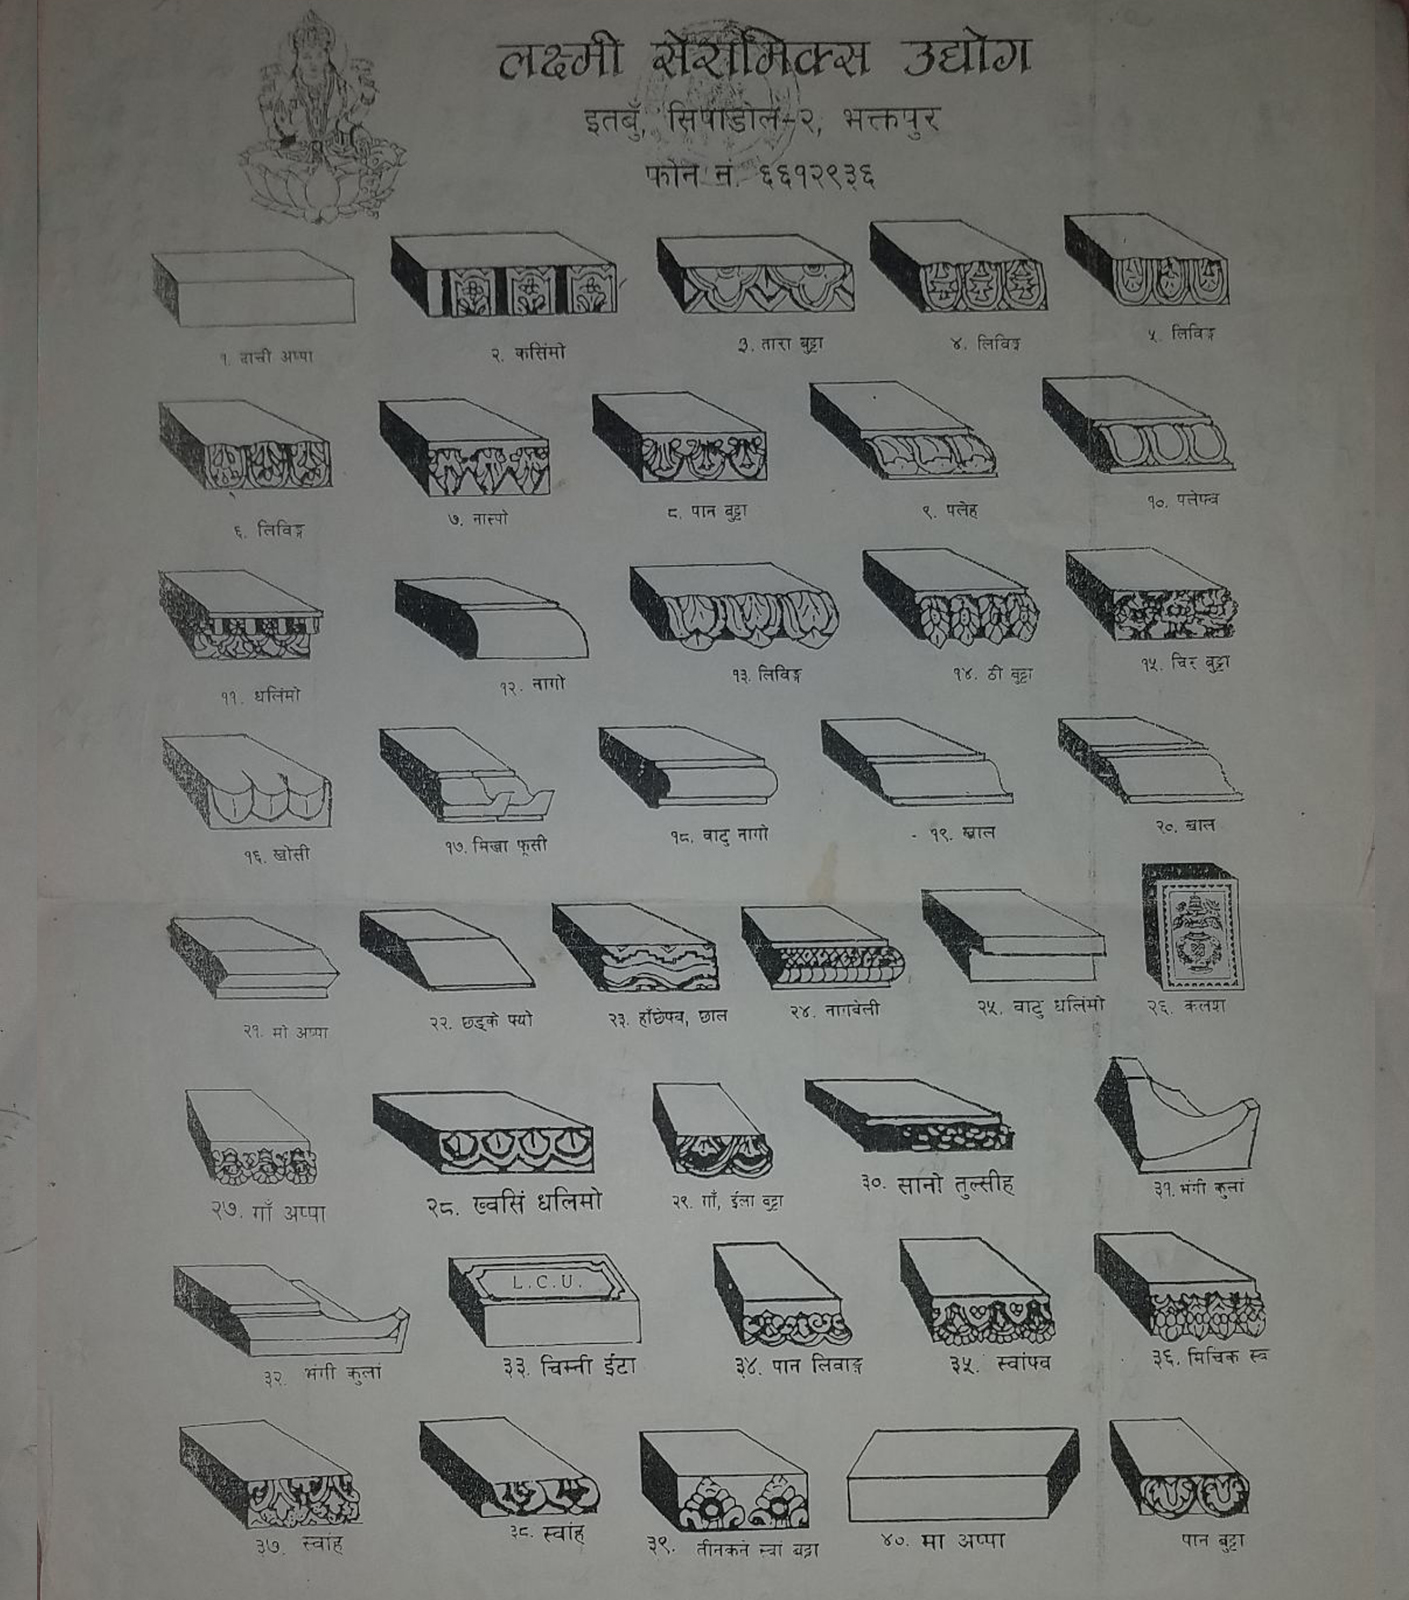 लक्ष्मी सेरामिक्स उद्योग
इतबुँ, सिपाडोल-२, भक्तपुर
फोन नं. ६६१२९३६
१. दाची अप्पा
२. कसिंमो
३. तारा बुट्टा
४. लिविङ्ग
५. लिविङ्ग
६. लिविङ्ग
७. नास्पो
८. पान बुट्टा
९. पलेह
१०. पलेफ्व
११. धलिंमो
१२. नागो
१३. लिविङ्ग
१४. ठी बुट्टा
१५. चिर बुट्टा
१६. खोसी
१७. मिखा फूसी
१८. वाटु नागो
१९. खाल
२०. खाल
२१. मो अप्पा
२२. छड्के फ्यो
२३. हाँछेफ्व, छाल
२४. नागबेली
२५. वाटु धलिंमो
२६. कलश
२७. गाँ अप्पा
२८. ख्वसिं धलिमो
२९. गाँ, ईला बुट्टा
३०. सानो तुल्सीह
३१. भंगी कुलां
L.C.U.
३२. भंगी कुलां
३३. चिम्नी ईंटा
३४. पान लिवाङ्ग
३५. स्वांफ्व
३६. मिचिक स्व
३७. स्वांह
३८. स्वांह
३९. तीनकनं स्वां बुट्टा
४०. मा अप्पा
पान बुट्टा